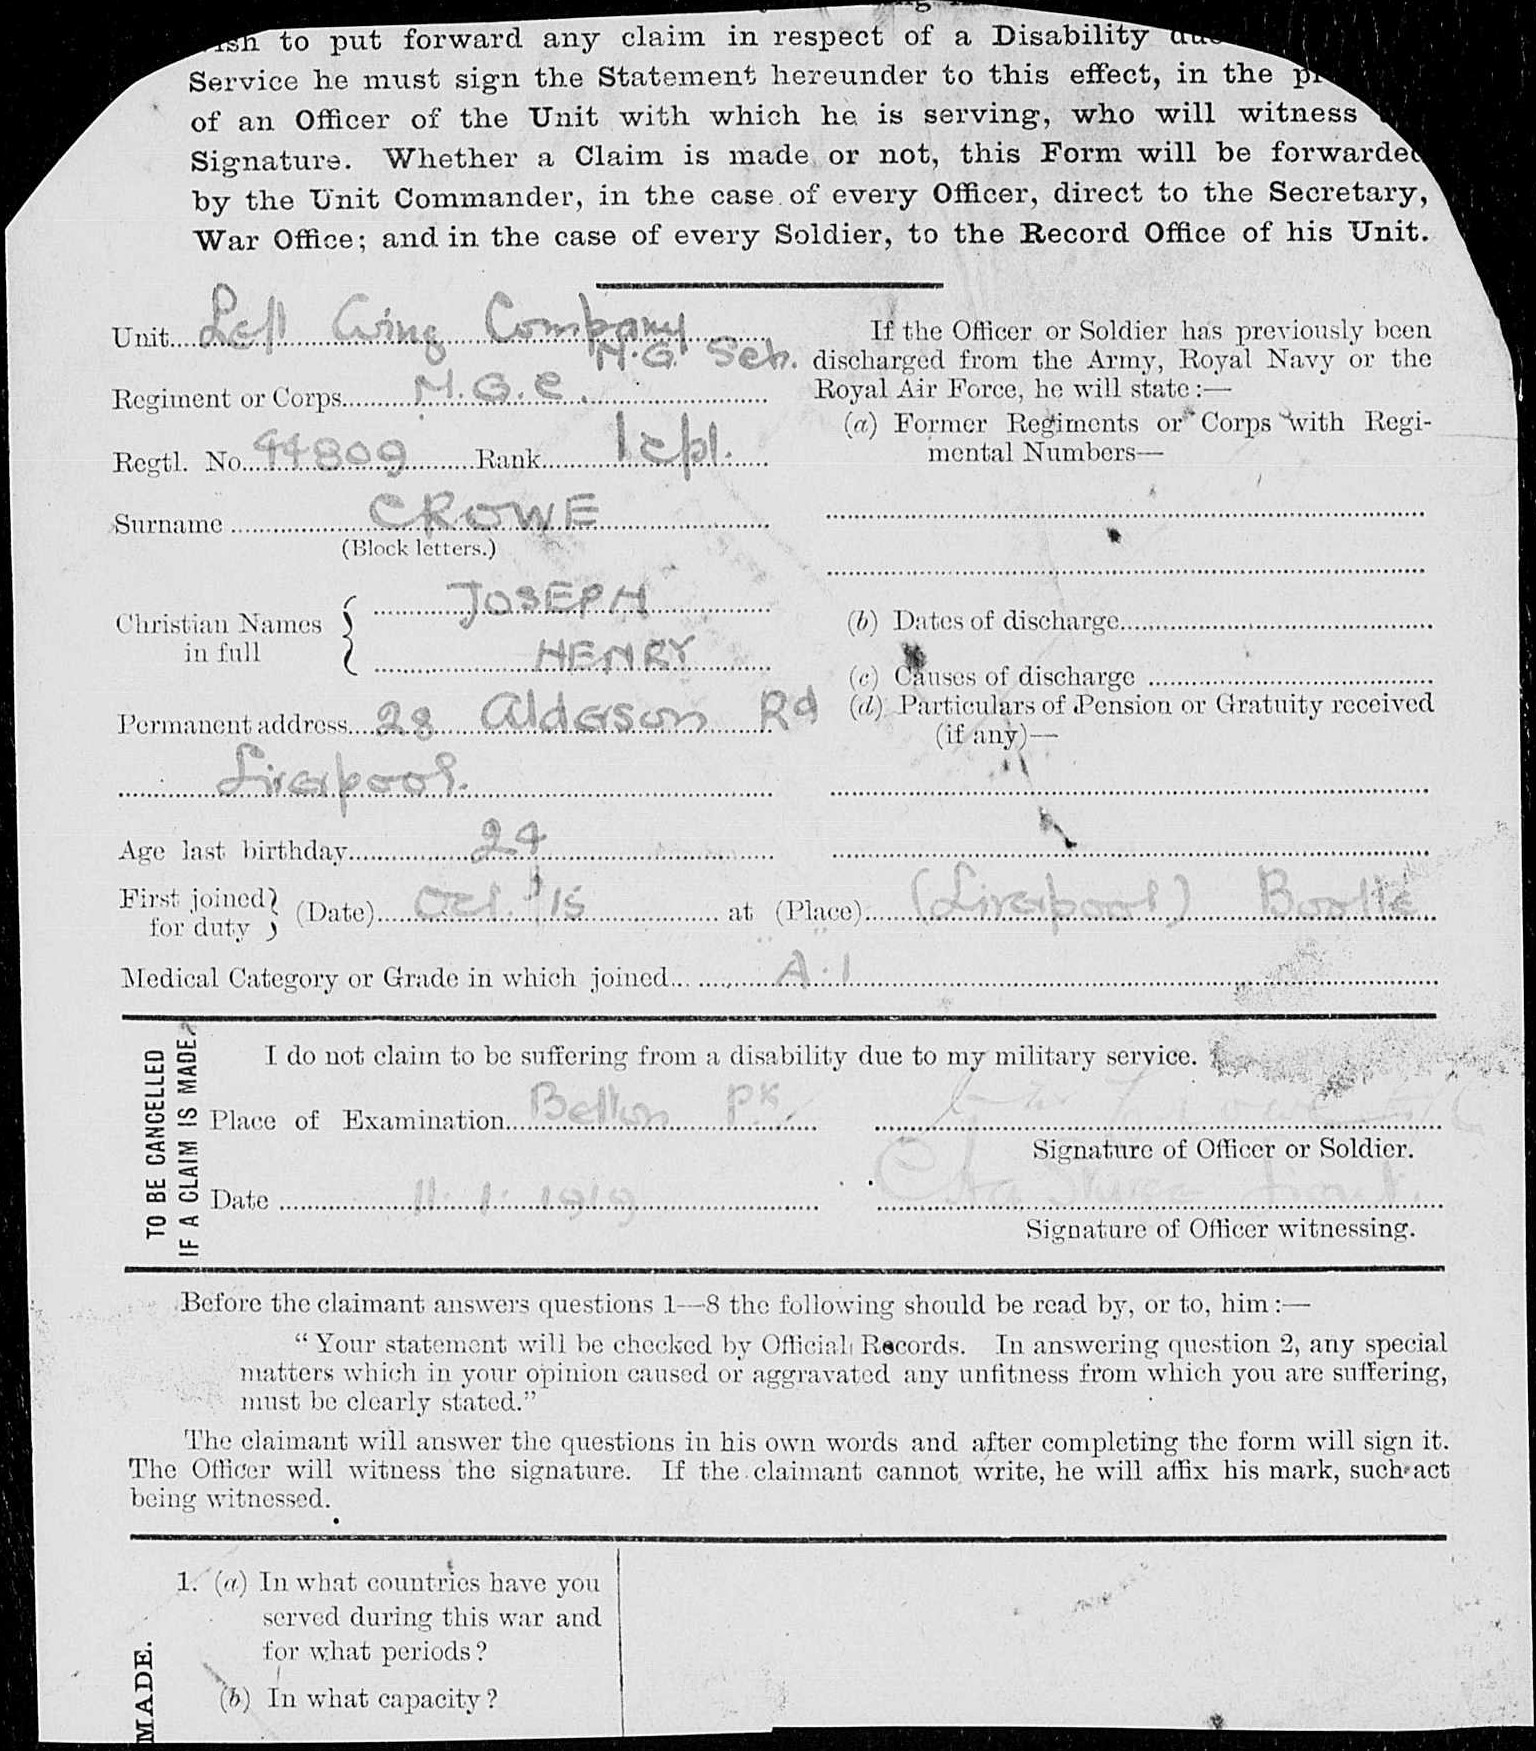 to put forward any claim in respect of a Disability
Service he must sign the Statement hereunder to this effect, in the
of an Officer of the Unit with which he is serving, who will witness
Signature. Whether a Claim is made or not, this Form will be forwarded
by the Unit Commander, in the case of every Officer, direct to the Secretary,
War Office; and in the case of every Soldier, to the Record Office of his Unit.
Unit Left Wing Company
M.G. Sch.
Regiment or Corps M.G.C.
Regtl. No. 44809 Rank lcpl.
Surname CROWE
(Block letters.)
Christian Names in full JOSEPH
HENRY
Permanent address 28 Alderson Rd
Liverpool.
Age last birthday 24
If the Officer or Soldier has previously been
discharged from the Army, Royal Navy or the
Royal Air Force, he will state:—
(a) Former Regiments or Corps with Regi-
mental Numbers—
(b) Dates of discharge
(c) Causes of discharge
(d) Particulars of Pension or Gratuity received
(if any)—
First joined for duty (Date) Oct. '15 at (Place) (Liverpool) Bootle
Medical Category or Grade in which joined A.1
TO BE CANCELLED
IF A CLAIM IS MADE.
I do not claim to be suffering from a disability due to my military service.
Place of Examination Belton Pk.
Signature of Officer or Soldier.
Date 11.1.1919
Signature of Officer witnessing.
Before the claimant answers questions 1—8 the following should be read by, or to, him:—
“Your statement will be checked by Official Records. In answering question 2, any special
matters which in your opinion caused or aggravated any unfitness from which you are suffering,
must be clearly stated.”
The claimant will answer the questions in his own words and after completing the form will sign it.
The Officer will witness the signature. If the claimant cannot write, he will affix his mark, such act
being witnessed.
1. (a) In what countries have you
served during this war and
for what periods?
(b) In what capacity?
MADE.